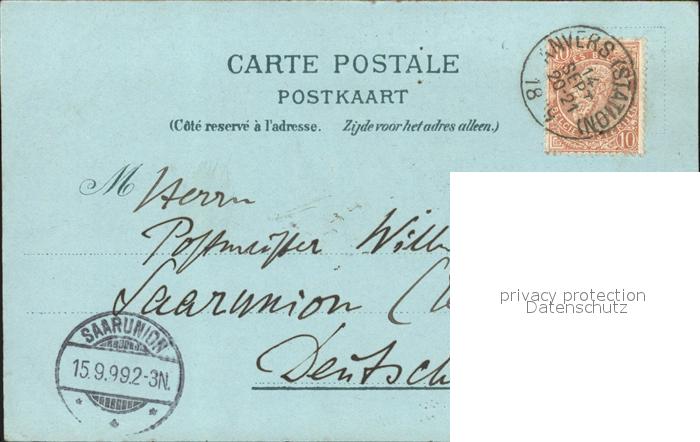 CARTE POSTALE
POSTKAART
(Côté reservé à l'adresse. Zijde voor het adres alleen.)
ANVERS (STATION)
14
SEPT
20-21
18
10
M Herrn
Postmeister Will
Saarunion (
Deutsch
privacy protection
Datenschutz
SAARUNION
15.9.99.2-3N.